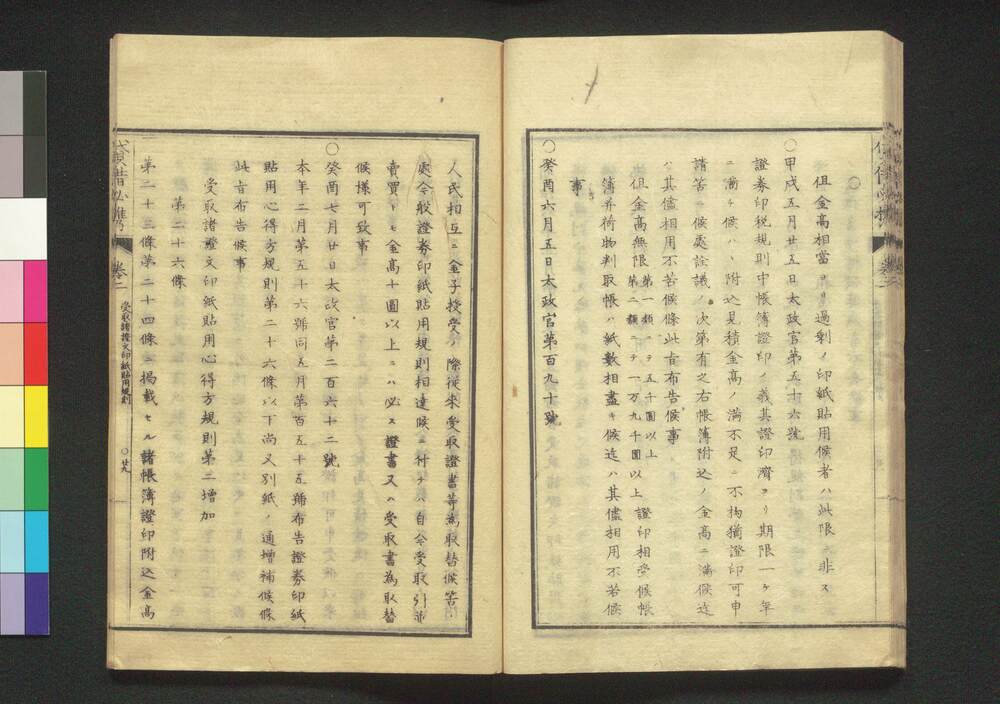 但金高相當ヨリ過剰ノ印紙貼用候者ハ此限ニ非ス
〇甲戌五月廿五日太政官第五十六號
證券印税規則中帳簿證印ノ義其證印濟ヨリ期限一ケ年
ニ満チ候ハヽ附込見積金高ノ満不足ニ不拘猶證印可申
請筈ニ候處詮議ノ次第有之右帳簿附込ノ金高ニ満候迄
ハ其儘相用不苦候條此旨布告候事
但金高無限第一類ニテ五千圓以上第二類ニテ一万九千圓以上證印相受候帳
簿并荷物判取帳ハ紙數相盡キ候迄ハ其儘相用不若候
事
〇癸酉六月五日太政官第百九十號
人民相互ニ金子授受ノ際従来受取證書等為取替候筈ノ
處今般證券印紙貼用規則相達候ニ付テハ自今受取引並
賣買トモ金高十圓以上ニハ必ス證書又ハ受取書為取替
候様可致事
〇癸酉七月廿日太政官第二百六十二號
本年二月第五十六號同五月第百五十五號布告證券印紙
貼用心得方規則第二十六條以下尚又別紙ノ通増補候條
此旨布告候事
受取諸證文印紙貼用心得方規則第二増加
第二十六條
第二十三條第二十四條ニ掲載セル諸帳簿證印附込金高
卷二
受取諸證文印紙貼用規則
〇廿九